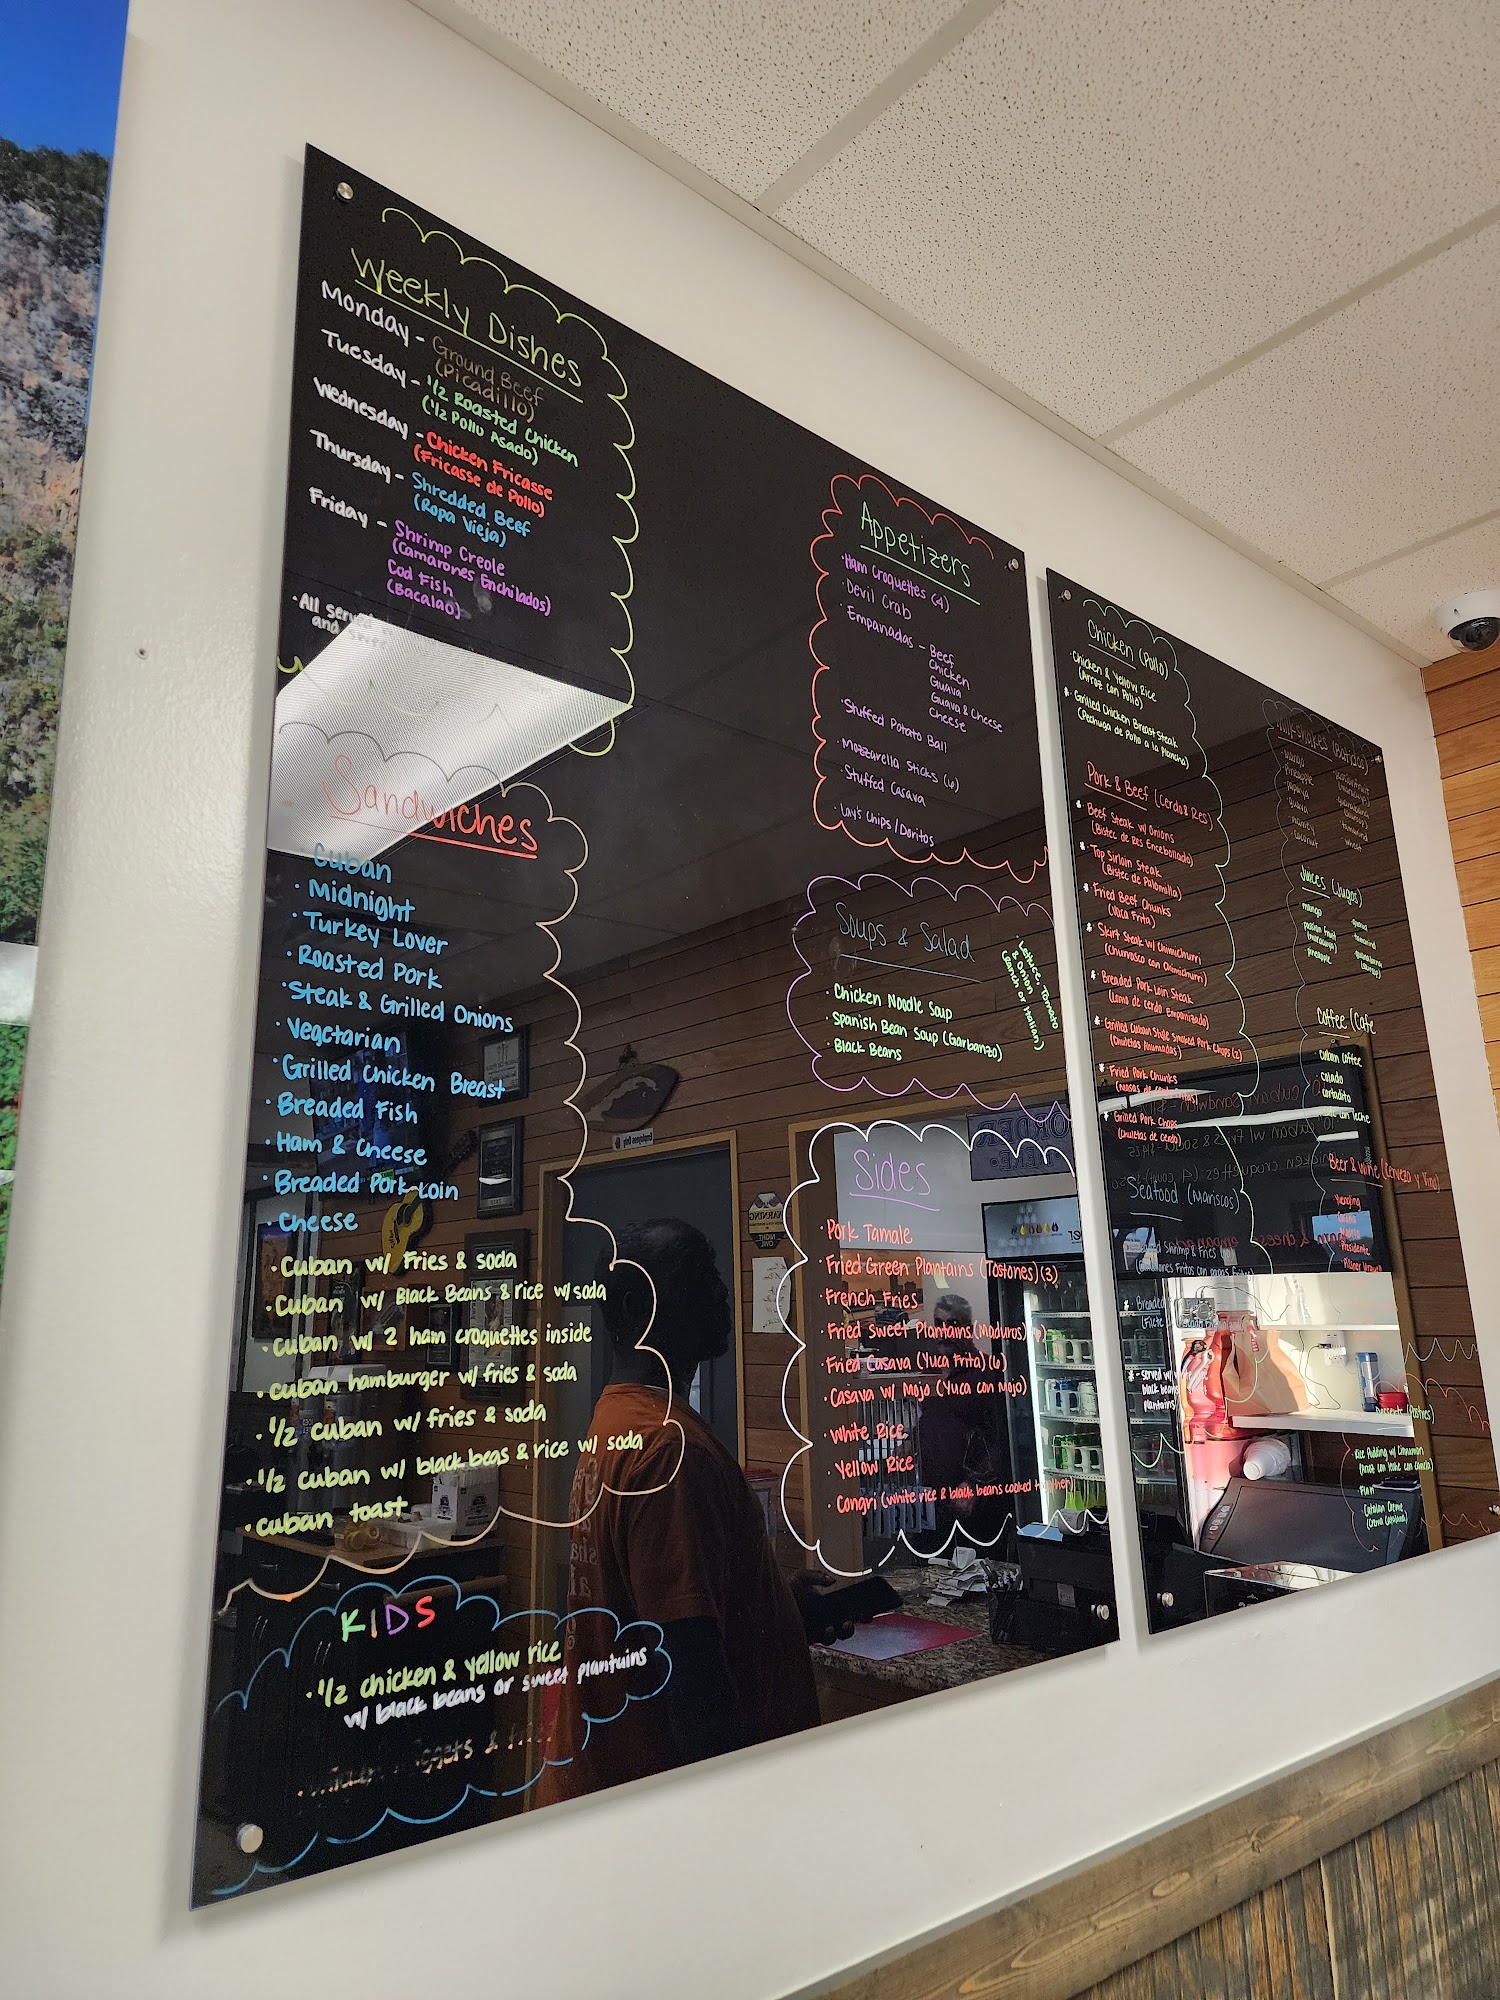 Weekly Dishes
Monday - Ground Beef
(Picadillo)
Tuesday - 1/2 Roasted Chicken
(1/2 Pollo Asado)
Wednesday - Chicken Fricasse
(Fricasse de Pollo)
Thursday - Shredded Beef
(Ropa Vieja)
Friday - Shrimp Creole
(Camarones Enchilados)
Cod Fish
(Bacalao)
·All
and
Sandwiches
· Cuban
· Midnight
· Turkey Lover
· Roasted Pork
· Steak & Grilled Onions
· Vegetarian
· Grilled Chicken Breast
· Breaded Fish
· Ham & Cheese
· Breaded Pork Loin
· Cheese
· Cuban w/ Fries & soda
· Cuban w/ Black Beans & rice w/ soda
· Cuban w/ 2 ham croquettes inside
· cuban hamburger w/ fries & soda
· 1/2 cuban w/ fries & soda
· 1/2 cuban w/ black beas & rice w/ soda
· cuban toast
KIDS
· 1/2 chicken & yellow rice
w/ black beans or sweet plantains
Appetizers
· Ham Croquettes (4)
· Devil Crab
· Empanadas - Beef
Chicken
Guava
Guava & Cheese
Cheese
· Stuffed Potato Ball
· Mozzarella Sticks (6)
· Stuffed Casava
· Lay's Chips / Doritos
Soups & Salad
· Chicken Noodle Soup
· Spanish Bean Soup (Garbanzo)
· Black Beans
· Lettuce, Tomato
& Onion
(Ranch or Italian)
Sides
· Pork Tamale
· Fried Green Plantains (Tostones) (3)
· French Fries
· Fried Sweet Plantains (Maduros)
· Fried Casava (Yuca Frita) (6)
· Casava w/ Mojo (Yuca con Mojo)
· White Rice
· Yellow Rice
· Congri (white rice & black beans cooked together)
Chicken (Pollo)
· Chicken & Yellow Rice
(Arroz con Pollo)
* Grilled Chicken Breast Steak
(Pechuga de Pollo a la Plancha)
Pork & Beef (Cerdo & Res)
* Beef Steak w/ Onions
(Bistec de Res Encebollado)
* Top Sirloin Steak
(Bistec de Palomilla)
* Fried Beef Chunks
(Vaca Frita)
* Skirt Steak w/ Chimichurri
(Churrasco con Chimichurri)
* Breaded Pork Loin Steak
(Lomo de cerdo Empanizado)
* Grilled Cuban Style Smoked Pork Chops (2)
(Chuletas Ahumadas)
* Fried Pork Chunks
(Masas de
* Grilled Pork Chops
(Chuletas de Cerdo)
Seafood (Mariscos)
Shrimp & Fries
* Breaded
* - Served w/
black beans
plantains
Milkshakes (Batidos)
mango
pineapple
papaya
guava
mamey
coconut
passion fruit
wheat
Juices (Jugos)
mango
passion fruit
pineapple
guava
tamarind
Coffee (Cafe
Cuban Coffee
colado
cortadito
con leche
Beer & Wine (Cerveza y Vino)
Presidente
Desserts (Postres)
Rice Pudding w/ Cinnamon
(Arroz con leche con Canela)
Flan
Catalan Creme
(Crema Catalana)